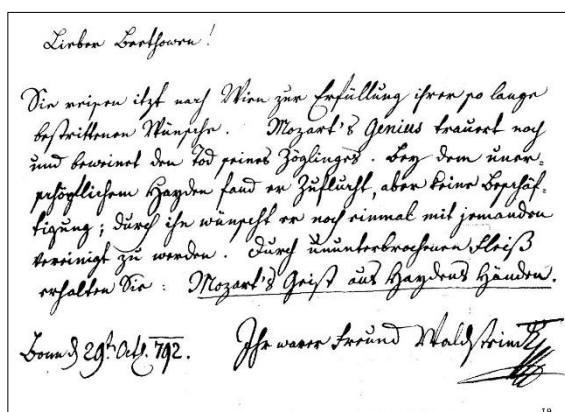 Lieber Beethowen!
Sie reisen itzt nach Wien zur Erfüllung ihrer so lange
bestrittenen Wünsche. Mozart's Genius trauert noch
und beweinet den Tod seines Zöglinges. Bey dem uner-
schöpflichem Hayden fand er Zuflucht, aber keine Beschäf-
tigung; durch ihn wünscht er noch einmal mit jemanden
vereinigt zu werden. Durch ununterbrochenen Fleiß
erhalten Sie: Mozart's Geist aus Haydens Händen.
Bonn d 29t. Oct. 792. Ihr warer Freund Waldstein
19